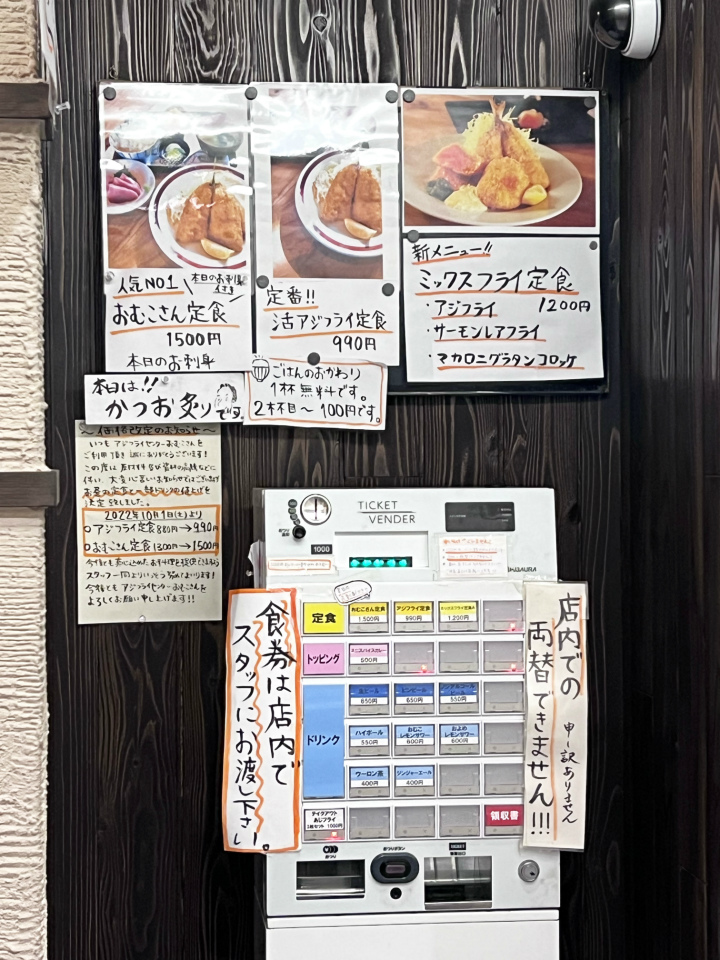 人気NO1
本日のお刺身付き
おむこさん定食
1500円
本日のお刺身
定番!!
活アジフライ定食
990円
新メニュー!!
ミックスフライ定食
・アジフライ 1200円
・サーモンレアフライ
・マカロニグラタンコロッケ
本日は!!
かつお炙りです。
ごはんのおかわり
1杯無料です。
2杯目〜100円です。
〜価格改定のお知らせ〜
いつもアジフライセンターおむこさんを
ご利用頂き誠にありがとうございます!
この度は原材料及び資材の高騰などに
伴い、大変心苦しいお知らせではございますが
お昼の定食と一部ドリンクの値上げを
決定致しました。
2022年10月1日(土)より
○アジフライ定食880円→990円
○おむこさん定食1300円→1500円
スタッフ一同よりいっそう努めてまいります!
今後ともアジフライセンターおむこさんを
よろしくお願い申し上げます!!
TICKET
VENDER
1000
食券は店内で
スタッフにお渡し下さい。
店内での
両替できません!!!
申し訳ありません
定食
おむこさん定食
1,500円
アジフライ定食
990円
ミックスフライ定食
1,200円
トッピング
600円
ドリンク
生ビール
650円
ビンビール
650円
ノンアルコールビール
550円
ハイボール
550円
おむこレモンサワー
600円
およめレモンサワー
600円
ウーロン茶
400円
ジンジャーエール
400円
テイクアウト
あじフライ
1000円
領収書
おつり
おつりボタン